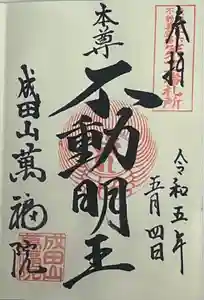 奉拝
本尊
不動明王
成田山萬福院
令和五年
五月四日